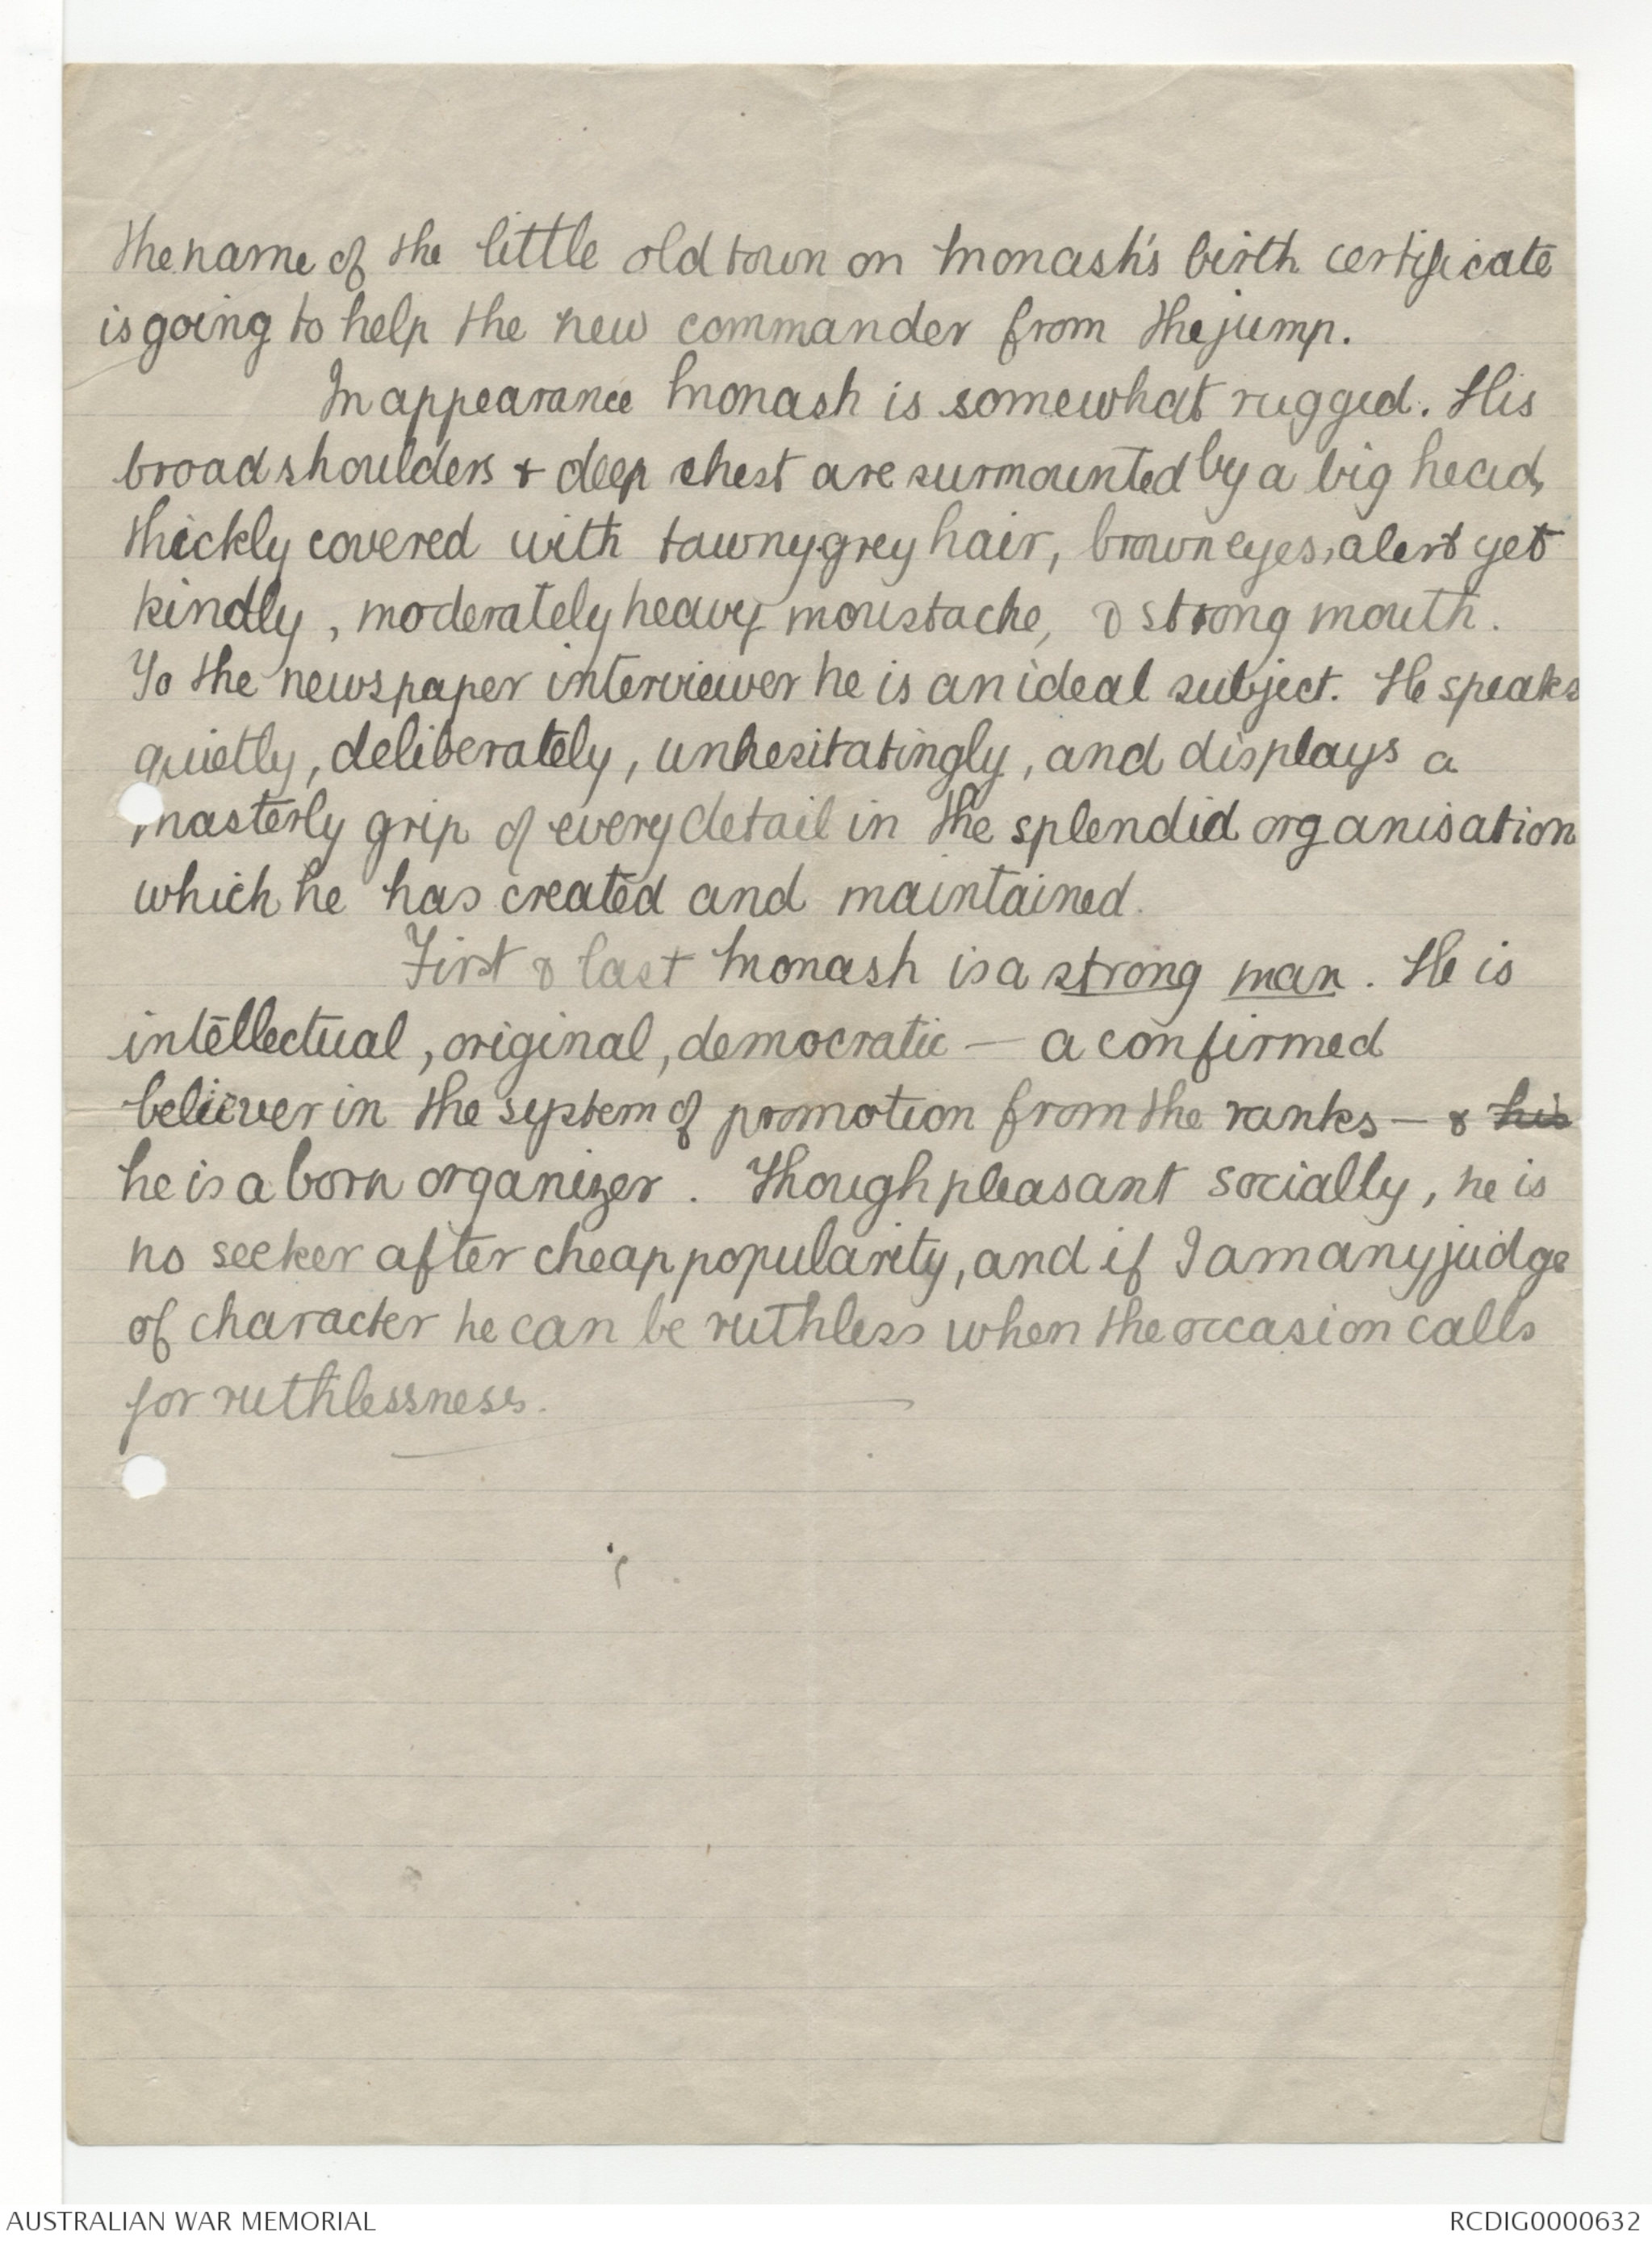 the name of the little old town on Monash's birth certificate
is going to help the new commander from the jump.
In appearance Monash is somewhat rugged. His
broad shoulders & deep chest are surmounted by a big head,
thickly covered with tawny-grey hair, brown eyes, alert yet
kindly, moderately heavy moustache, & strong mouth.
To the newspaper interviewer he is an ideal subject. He speaks
quietly, deliberately, unhesitatingly, and displays a
masterly grip of every detail in the splendid organisation
which he has created and maintained.
First & last Monash is a strong man. He is
intellectual, original, democratic — a confirmed
believer in the system of promotion from the ranks — & his
he is a born organizer. Though pleasant socially, he is
no seeker after cheap popularity, and if I am any judge
of character he can be ruthless when the occasion calls
for ruthlessness.
AUSTRALIAN WAR MEMORIAL
RCDIG0000632